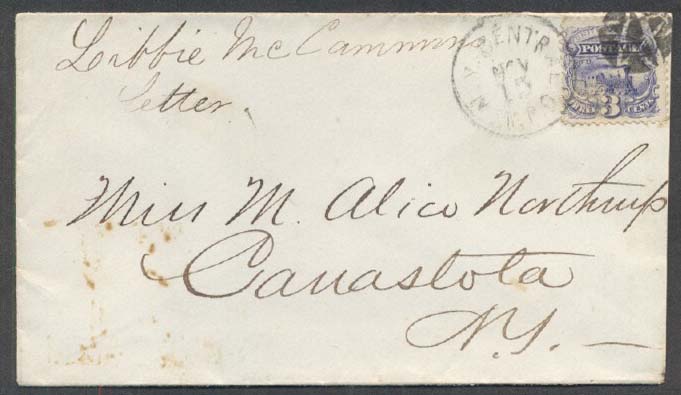 Libbie McCammons
letter.
N.Y. CENTRAL
NOV
R.P.O.
POSTAGE
3
Miss M. Alice Northrup
Canastota
N.Y. —